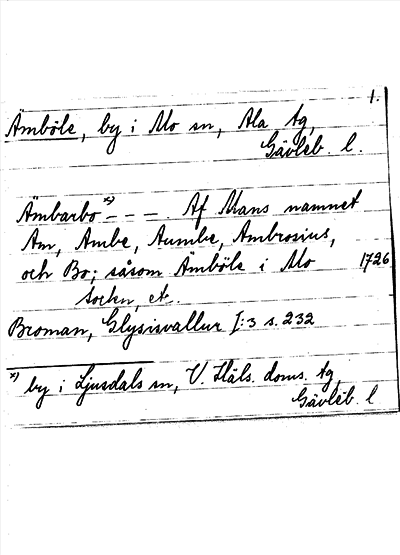 1.
Ämböle, by i Mo sn, Ala tg,
Gävleb. l.
Ämbarbo x) – – –. Af Mans namnet
Am, Ambe, Aumbe, Ambrosius,
och Bo; såsom Ämböle i Mo 1726
socken, etc.
Broman, Glysisvallur I:3 s. 232
x) by i Ljusdals sn, V. Häls. doms. tg,
Gävleb. l